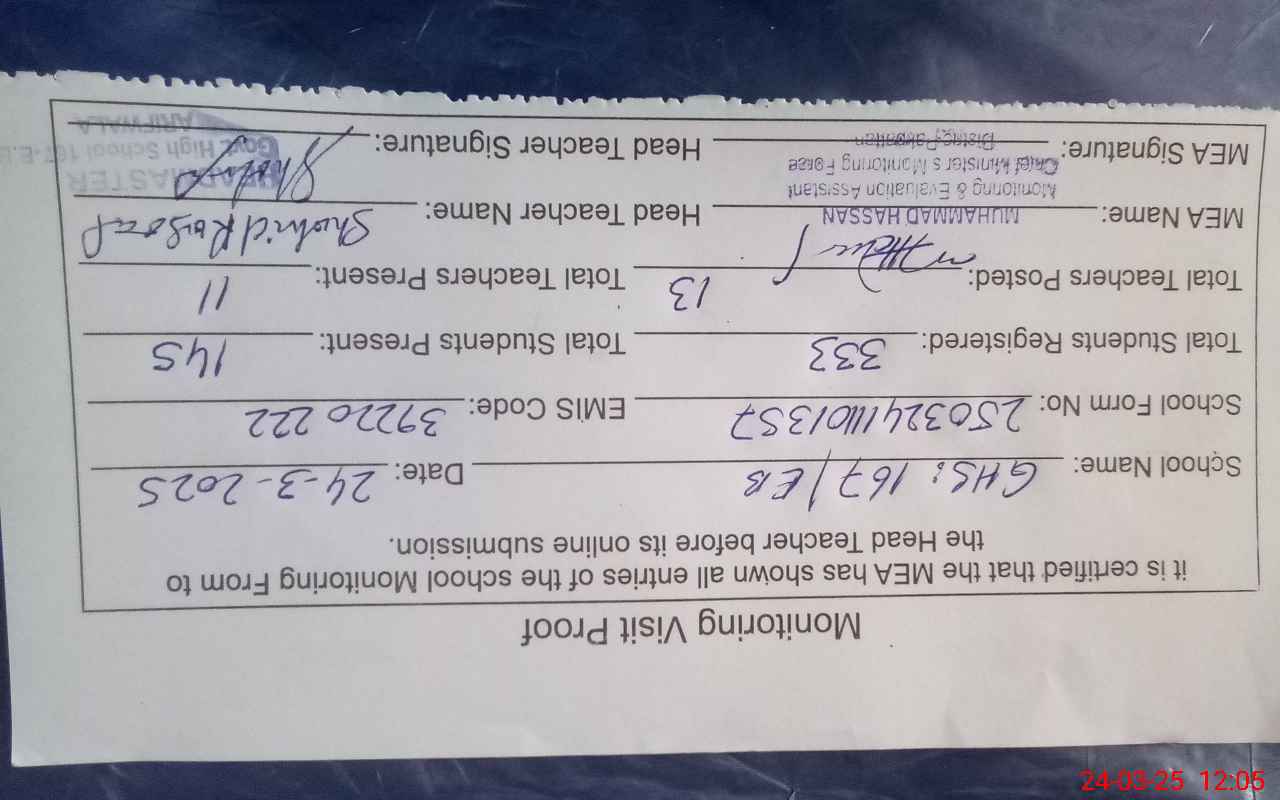 Monitoring Visit Proof
it is certified that the MEA has shown all entries of the school Monitoring From to
the Head Teacher before its online submission.
School Name: GHS: 167/EB Date: 24-3-2025
School Form No: 250324111101357 EMIS Code: 39220222
Total Students Registered: 333 Total Students Present: 145
Total Teachers Posted: 13 Total Teachers Present: 11
MEA Name: MUHAMMAD HASSAN Head Teacher Name: Shahid Rasool
Monitoring & Evaluation Assistant
Chief Minister's Monitoring Force
District Pakpattan
MEA Signature: Head Teacher Signature:
HEADMASTER
Govt. High School 167-E.B
ARIFWALA
24-03-25 12:05